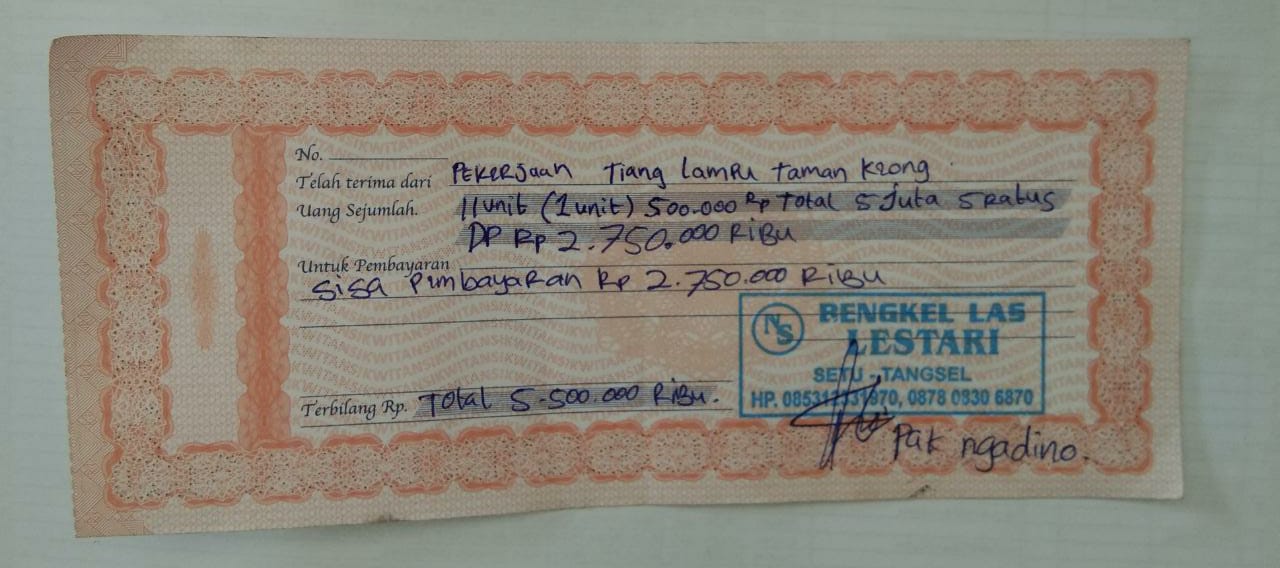 No.
Telah terima dari PEKERJaan Tiang lampu taman
Uang Sejumlah. 11 unit (1 unit) 500.000 Rp Total 5 Juta 5 Ratus
DP Rp 2.750.000 RiBu
Untuk Pembayaran
Sisa Pembayaran Rp 2.750.000 RiBu
NS BENGKEL LAS
LESTARI
SETU - TANGSEL
Terbilang Rp. Total 5.500.000 RiBu.
HP. 0878 0830 6870
Pak ngadino.